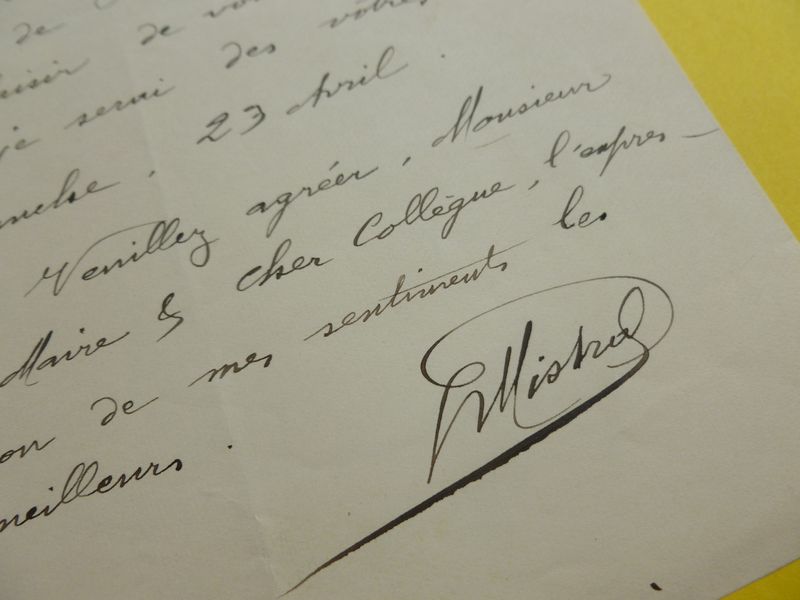 de
plaisir de vou
je serai des vôtres
manche, 23 Avril.
Veuillez agréer, Monsieur
Maire & cher Collègue, l'expres-
on de mes sentiments les
meilleurs.
Mistral